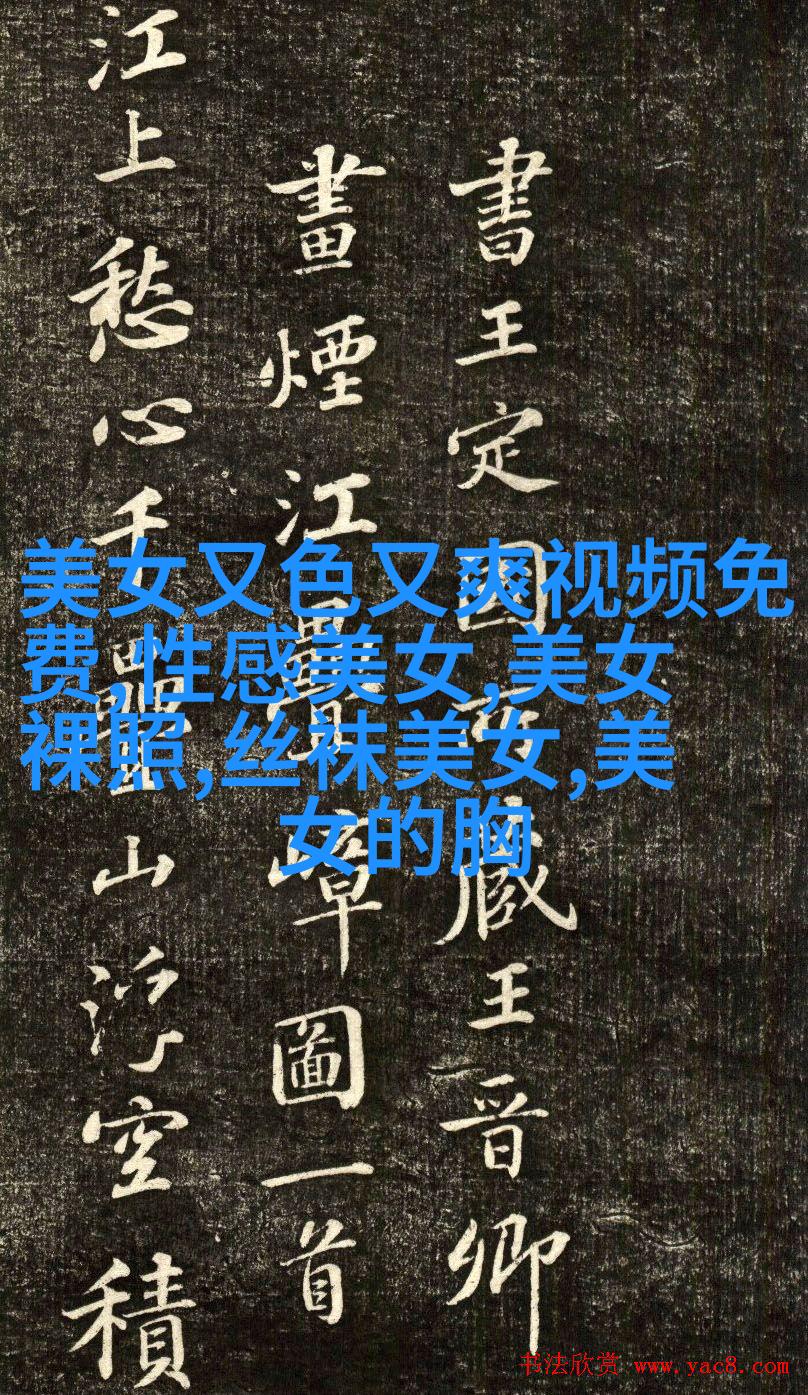 書王定國所藏王晉卿
畫煙江疊嶂圖一首
江上愁心千疊山浮空積
美女又色又爽视频免
费,性感美女,美女
裸照,丝袜美女,美
女的胸
书法欣赏 www.yac8.com